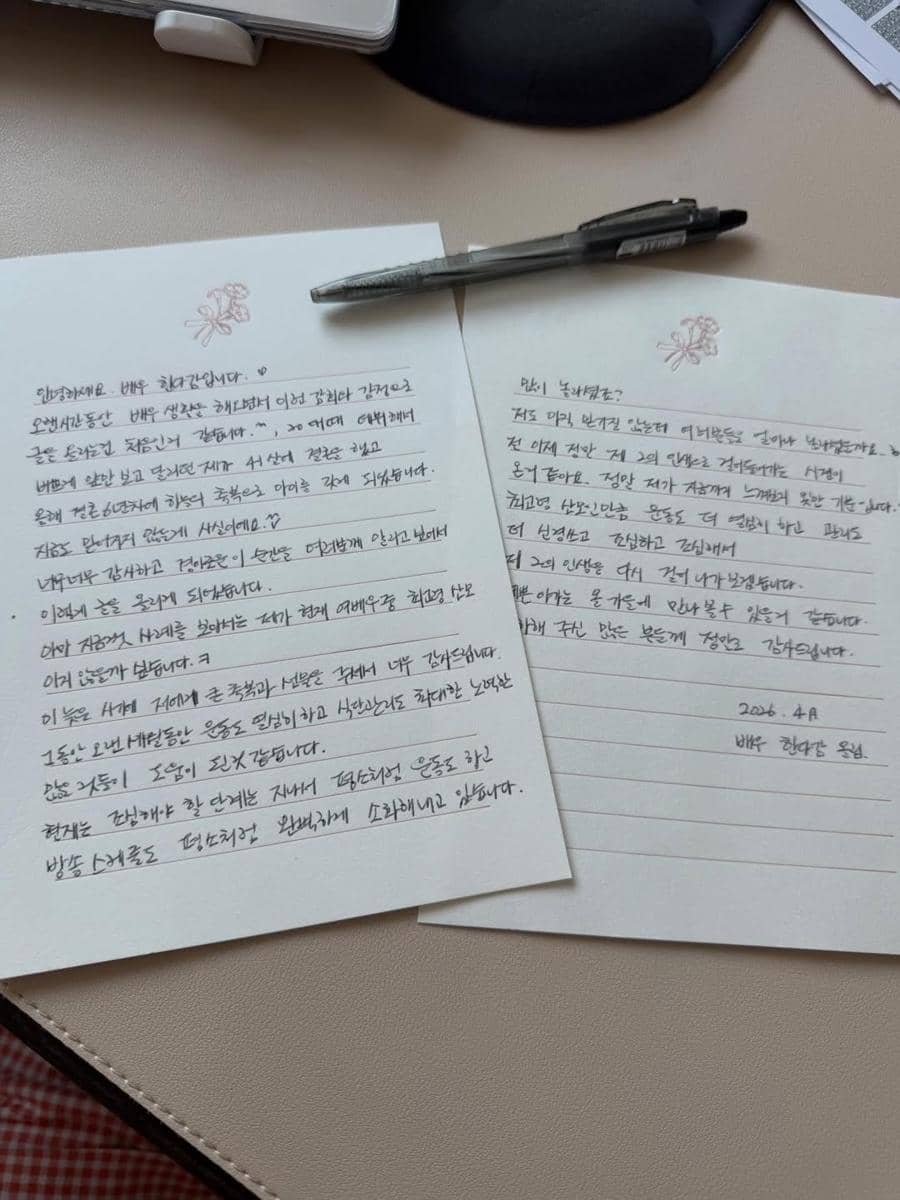 안녕하세요. 배우 한다감입니다.
오랜시간동안 배우 생활을 해오면서 이런 감회와 감정으로
글을 올리는건 처음인거 같습니다.^^, 20여때 데뷔해서
바쁘게 앞만 보고 달리던 제가 41살에 결혼을 했고
올해 결혼 6년차에 하늘의 축복으로 아이를 갖게 되었습니다.
지금도 믿어지지 않는게 사실이에요.
너무너무 감사하고 경이로운 이 순간을 여러분께 알리고 싶어서
이렇게 글을 올리게 되었습니다.
아마 지금껏 사례를 보아서는 제가 현재 여배우중 최고령 산모
이지 않을까 싶습니다.ㅋ
이 늦은 시기에 저에게 큰 축복과 선물을 주셔서 너무 감사드립니다.
그동안 오랜 세월동안 운동도 열심히 하고 식단관리도 최대한 노력한
많은 것들이 도움이 된것 같습니다.
현재는 조심해야 할 단계는 지나서 평소처럼 운동도 하고
방송 스케줄도 평소처럼 완벽하게 소화해내고 있습니다.
많이 놀라셨죠?
저도 아직 믿기질 않는데 여러분들은 얼마나 놀라셨을까요.
전 이제 정말 제 2의 인생으로 걸어들어가는 시점이
온거 같아요. 정말 제가 지금까지 느껴보지 못한 기분입니다.
최고령 산모인만큼 운동도 더 열심히 하고 관리도
더 신경쓰고 조심하고 조심해서
제 2의 인생을 다시 걸어 나가보겠습니다.
쁜 아가는 올 가을에 만나볼수 있을거 같습니다.
하해 주신 많은 분들께 정말로 감사드립니다.
2026. 4月
배우 한다감 올림.